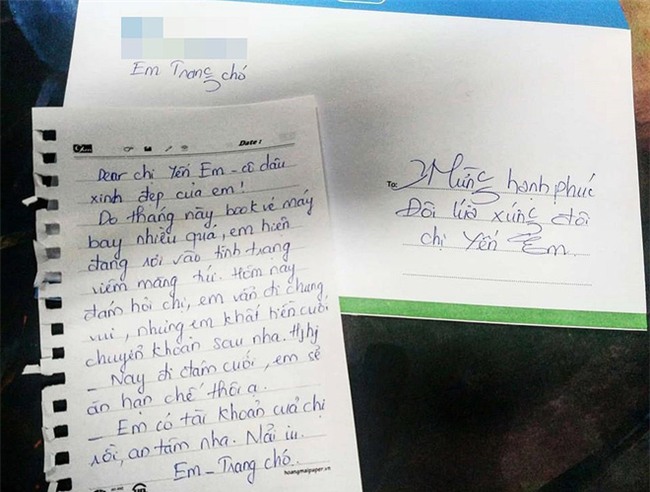 Em Trang chó
Date :
Dear chị Yến Em - cô dâu
xinh đẹp của em!
Do tháng này book vé máy
bay nhiều quá, em hiện
đang rơi vào tình trạng
viêm màng túi. Hôm nay
đám hỏi chị, em vẫn đi chung
vui, nhưng em khất tiền cưới
chuyển khoản sau nha. Hjhj
- Nay đi đám cưới, em sẽ
ăn hạn chế thôi ạ.
- Em có tài khoản của chị
rồi, an tâm nha.
Em - Trang chó.
hoangmaipaper.vn
To:
Mừng hạnh phúc
Đôi lứa xứng đôi
chị Yến Em.